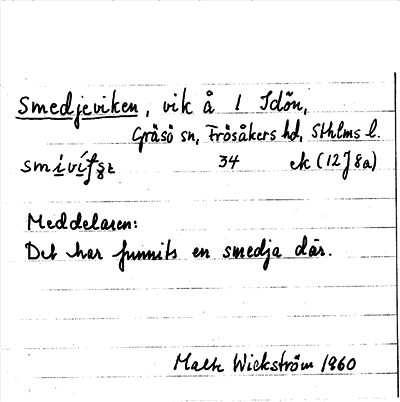 Smedjeviken, vik å 1 Idön,
Gräsö sn, Frösåkers hd, Sthlms l.
34 ek (12J8a)
Meddelaren:
Det har funnits en smedja där.
Wickström 1960